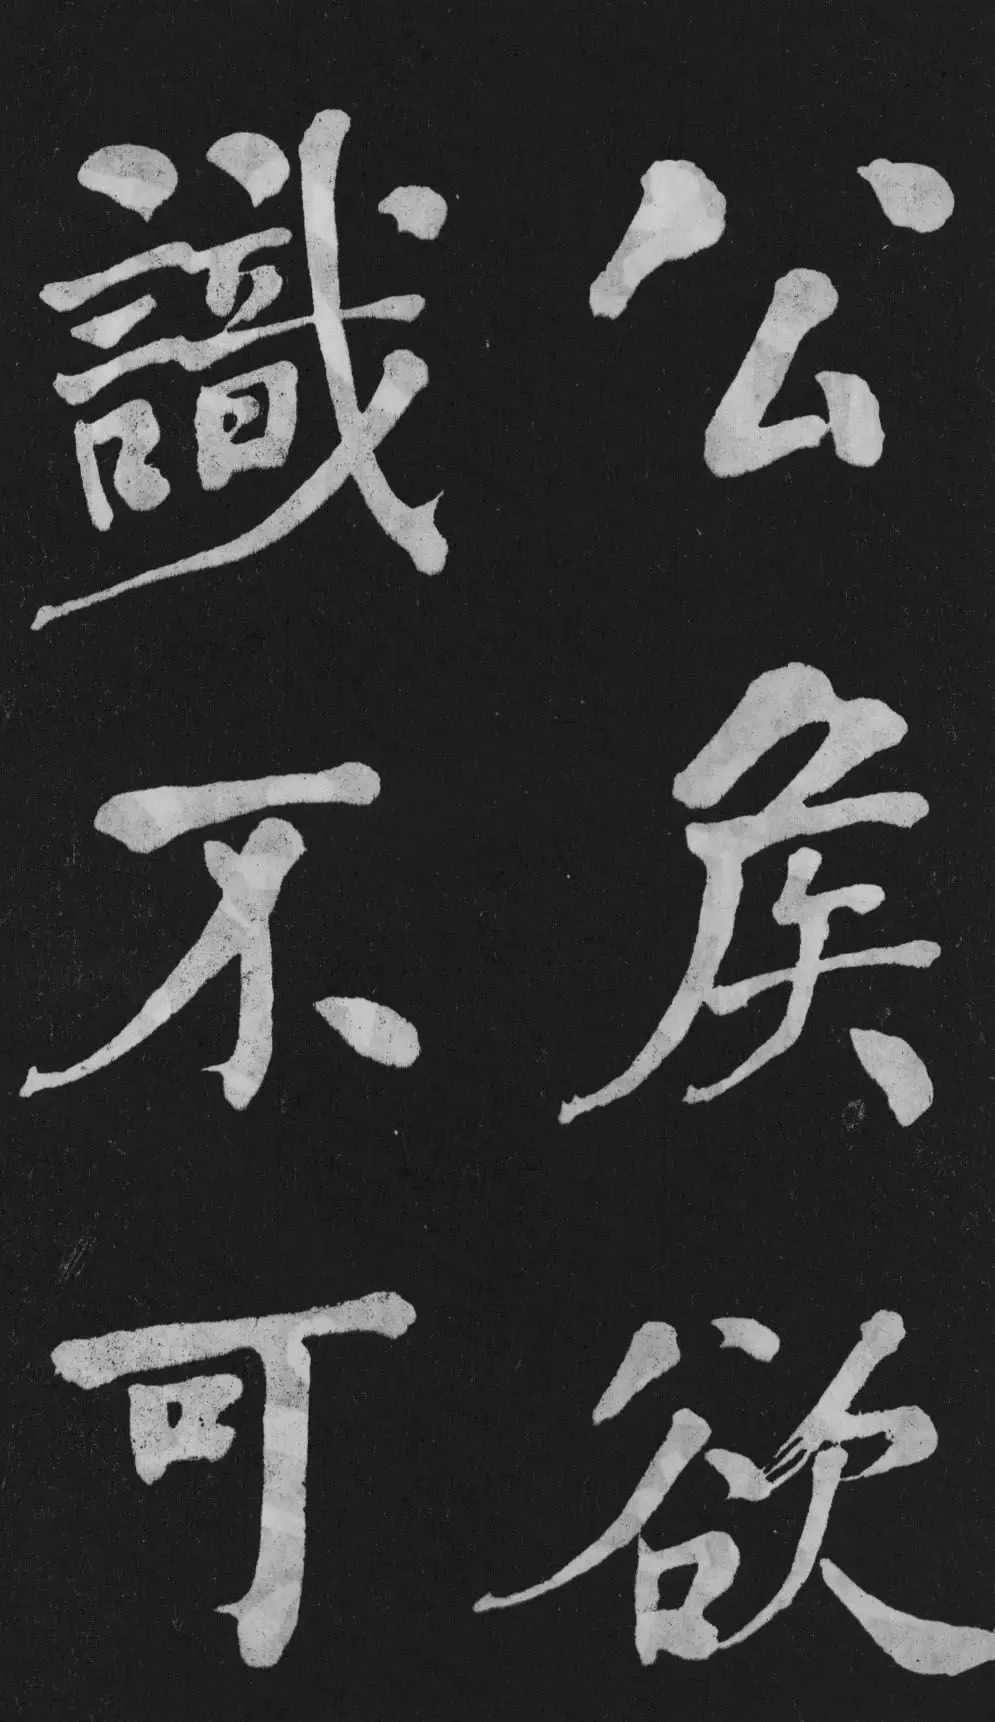 公侯欲
識不可